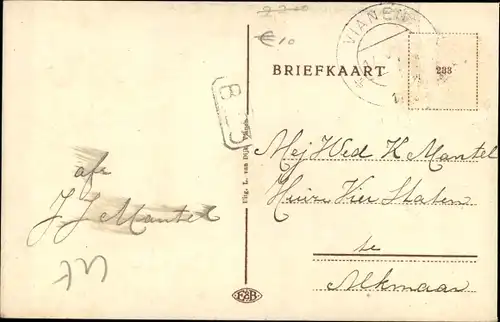 € 10
VIANEN
BRIEFKAART
233
Mej Wed K Mantel
Huize Vier Staten
te
Alkmaar
afz
J J Mantel
Uitg. L. van Dijk
F&B